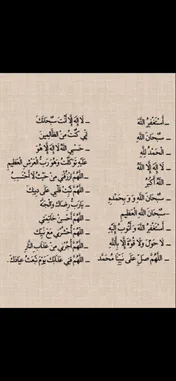 ـ أَسْتَغْفِرُ اللَّهَ
ـ سُبْحَانَ اللَّهِ
ـ الْحَمْدُ لِلَّهِ
ـ لَا إِلَهَ إِلَّا اللَّهُ
ـ اللَّهُ أَكْبَرُ
ـ سُبْحَانَ اللَّهِ وَ بِحَمْدِهِ
ـ سُبْحَانَ اللَّهِ الْعَظِيمِ
ـ أَسْتَغْفِرُ اللَّهَ وَ أَتُوبُ إِلَيْهِ
ـ لَا حَوْلَ وَلَا قُوَّةَ إِلَّا بِاللَّهِ
ـ اللَّهُمَّ صَلِّ عَلَى نَبِيِّنَا مُحَمَّد
ـ لَا إِلَهَ إِلَّا أَنْتَ سُبْحَانَكَ
إِنِّي كُنْتُ مِنَ الظَّالِمِينَ
ـ حَسْبِيَ اللَّهُ لَا إِلَهَ إِلَّا هُوَ
عَلَيْهِ تَوَكَّلْتُ وَهُوَ رَبُّ الْعَرْشِ الْعَظِيمِ
ـ اللَّهُمَّ ارْزُقْنِي مِنْ حَيْثُ لَا أَحْتَسِبُ
ـ اللَّهُمَّ ثَبِّتْ قَلْبِي عَلَى دِينِكَ
ـ يَا رَبِّ رِضَاكَ وَالْجَنَّةَ
ـ اللَّهُمَّ أَحْسِنْ خَاتِمَتِي
ـ اللَّهُمَّ احْشُرْنِي مَعَ نَبِيِّكَ
ـ اللَّهُمَّ أَجِرْنِي مِنْ عَذَابِ النَّارِ
ـ اللَّهُمَّ قِنِي عَذَابَكَ يَوْمَ تَبْعَثُ عِبَادَكَ